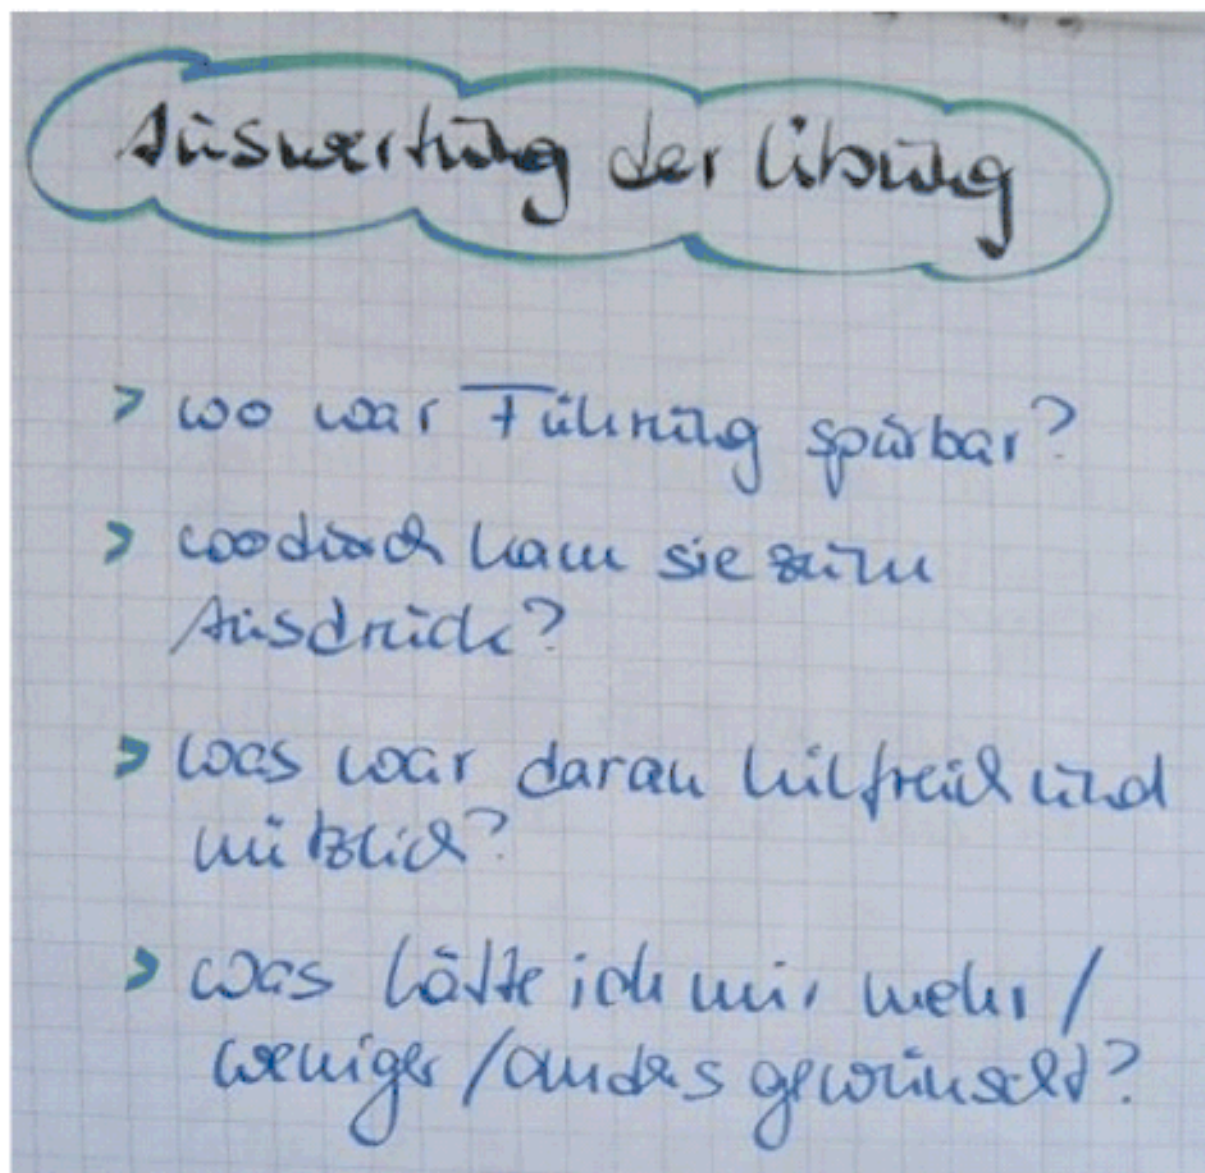 Auswertung der Übung
> wo war Führung spürbar?
> wodurch kam sie zum
Ausdruck?
> was war daran hilfreich und
nützlich?
> was hätte ich mir mehr /
weniger / anders gewünscht?